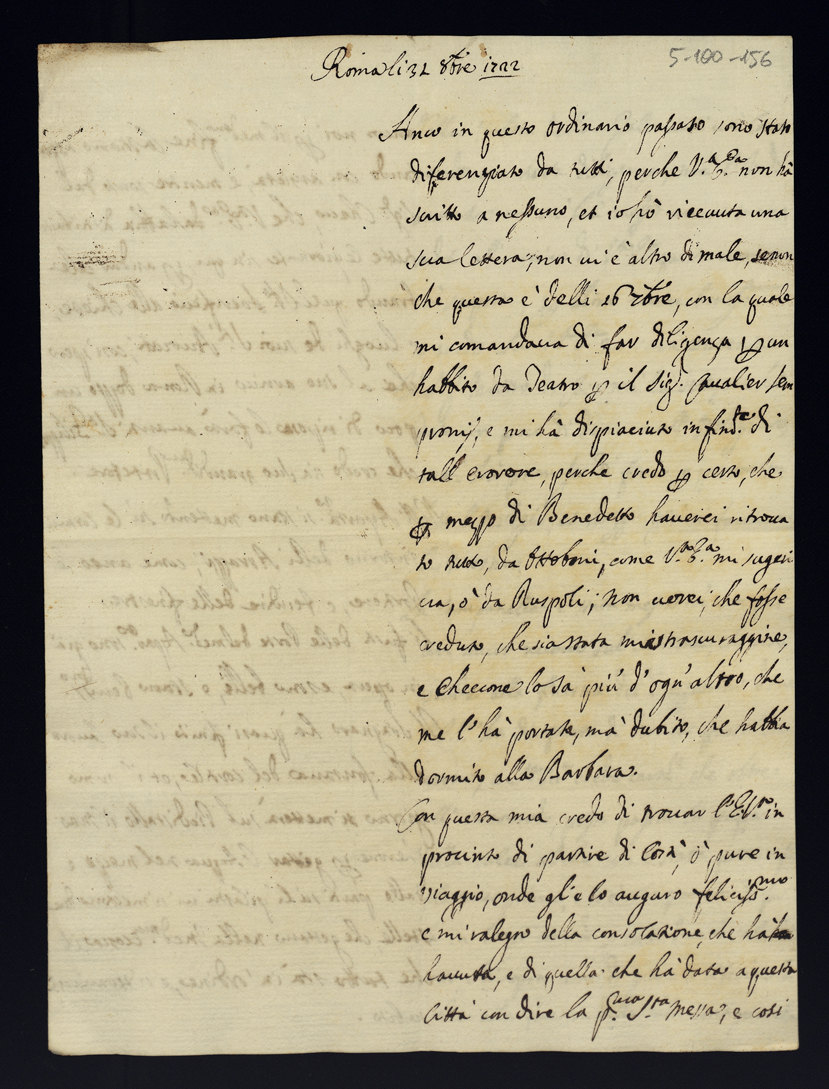 5-100-156
Roma li 31 8bre 1722
Anco in questo ordinario passato sono stato
diferenziato da tutti, perche V.a E.a non hà
scritto a nessuno, et io hò riceuuta una
sua lettera; non ui è altro di male, senon
che questa è delli 16 7bre, con la quale
mi comandaua di far diligenza p un
habbito da Teatro p il Sig.r Caualier Sem
pronij, e mi hà dispiaciuto infind.te di
tall erorore, perche credo p certo, che
p mezzo di Benedetto hauerei ritroua
to tutto, da Ottoboni, come V.a E.a mi sugeri
ua, ò da Ruspoli; non uorei, che fosse
creduto, che sia stata mia trascuraggine,
e Checcone lo sà più d'ogn'altro, che
me l'hà portata, mà dubito, che habbia
dormito alla Barbara.
Con questa mia credo di trouar l'E.V.ra in
procinto di partire di costà, ò pure in
Viaggio, onde gl'e lo auguro feliciss.mo
e mi ralegro della consolazione, che hà
hauuta, e di quella che hà data a questa
Città con dire la p.ma S.ta Messa, e così